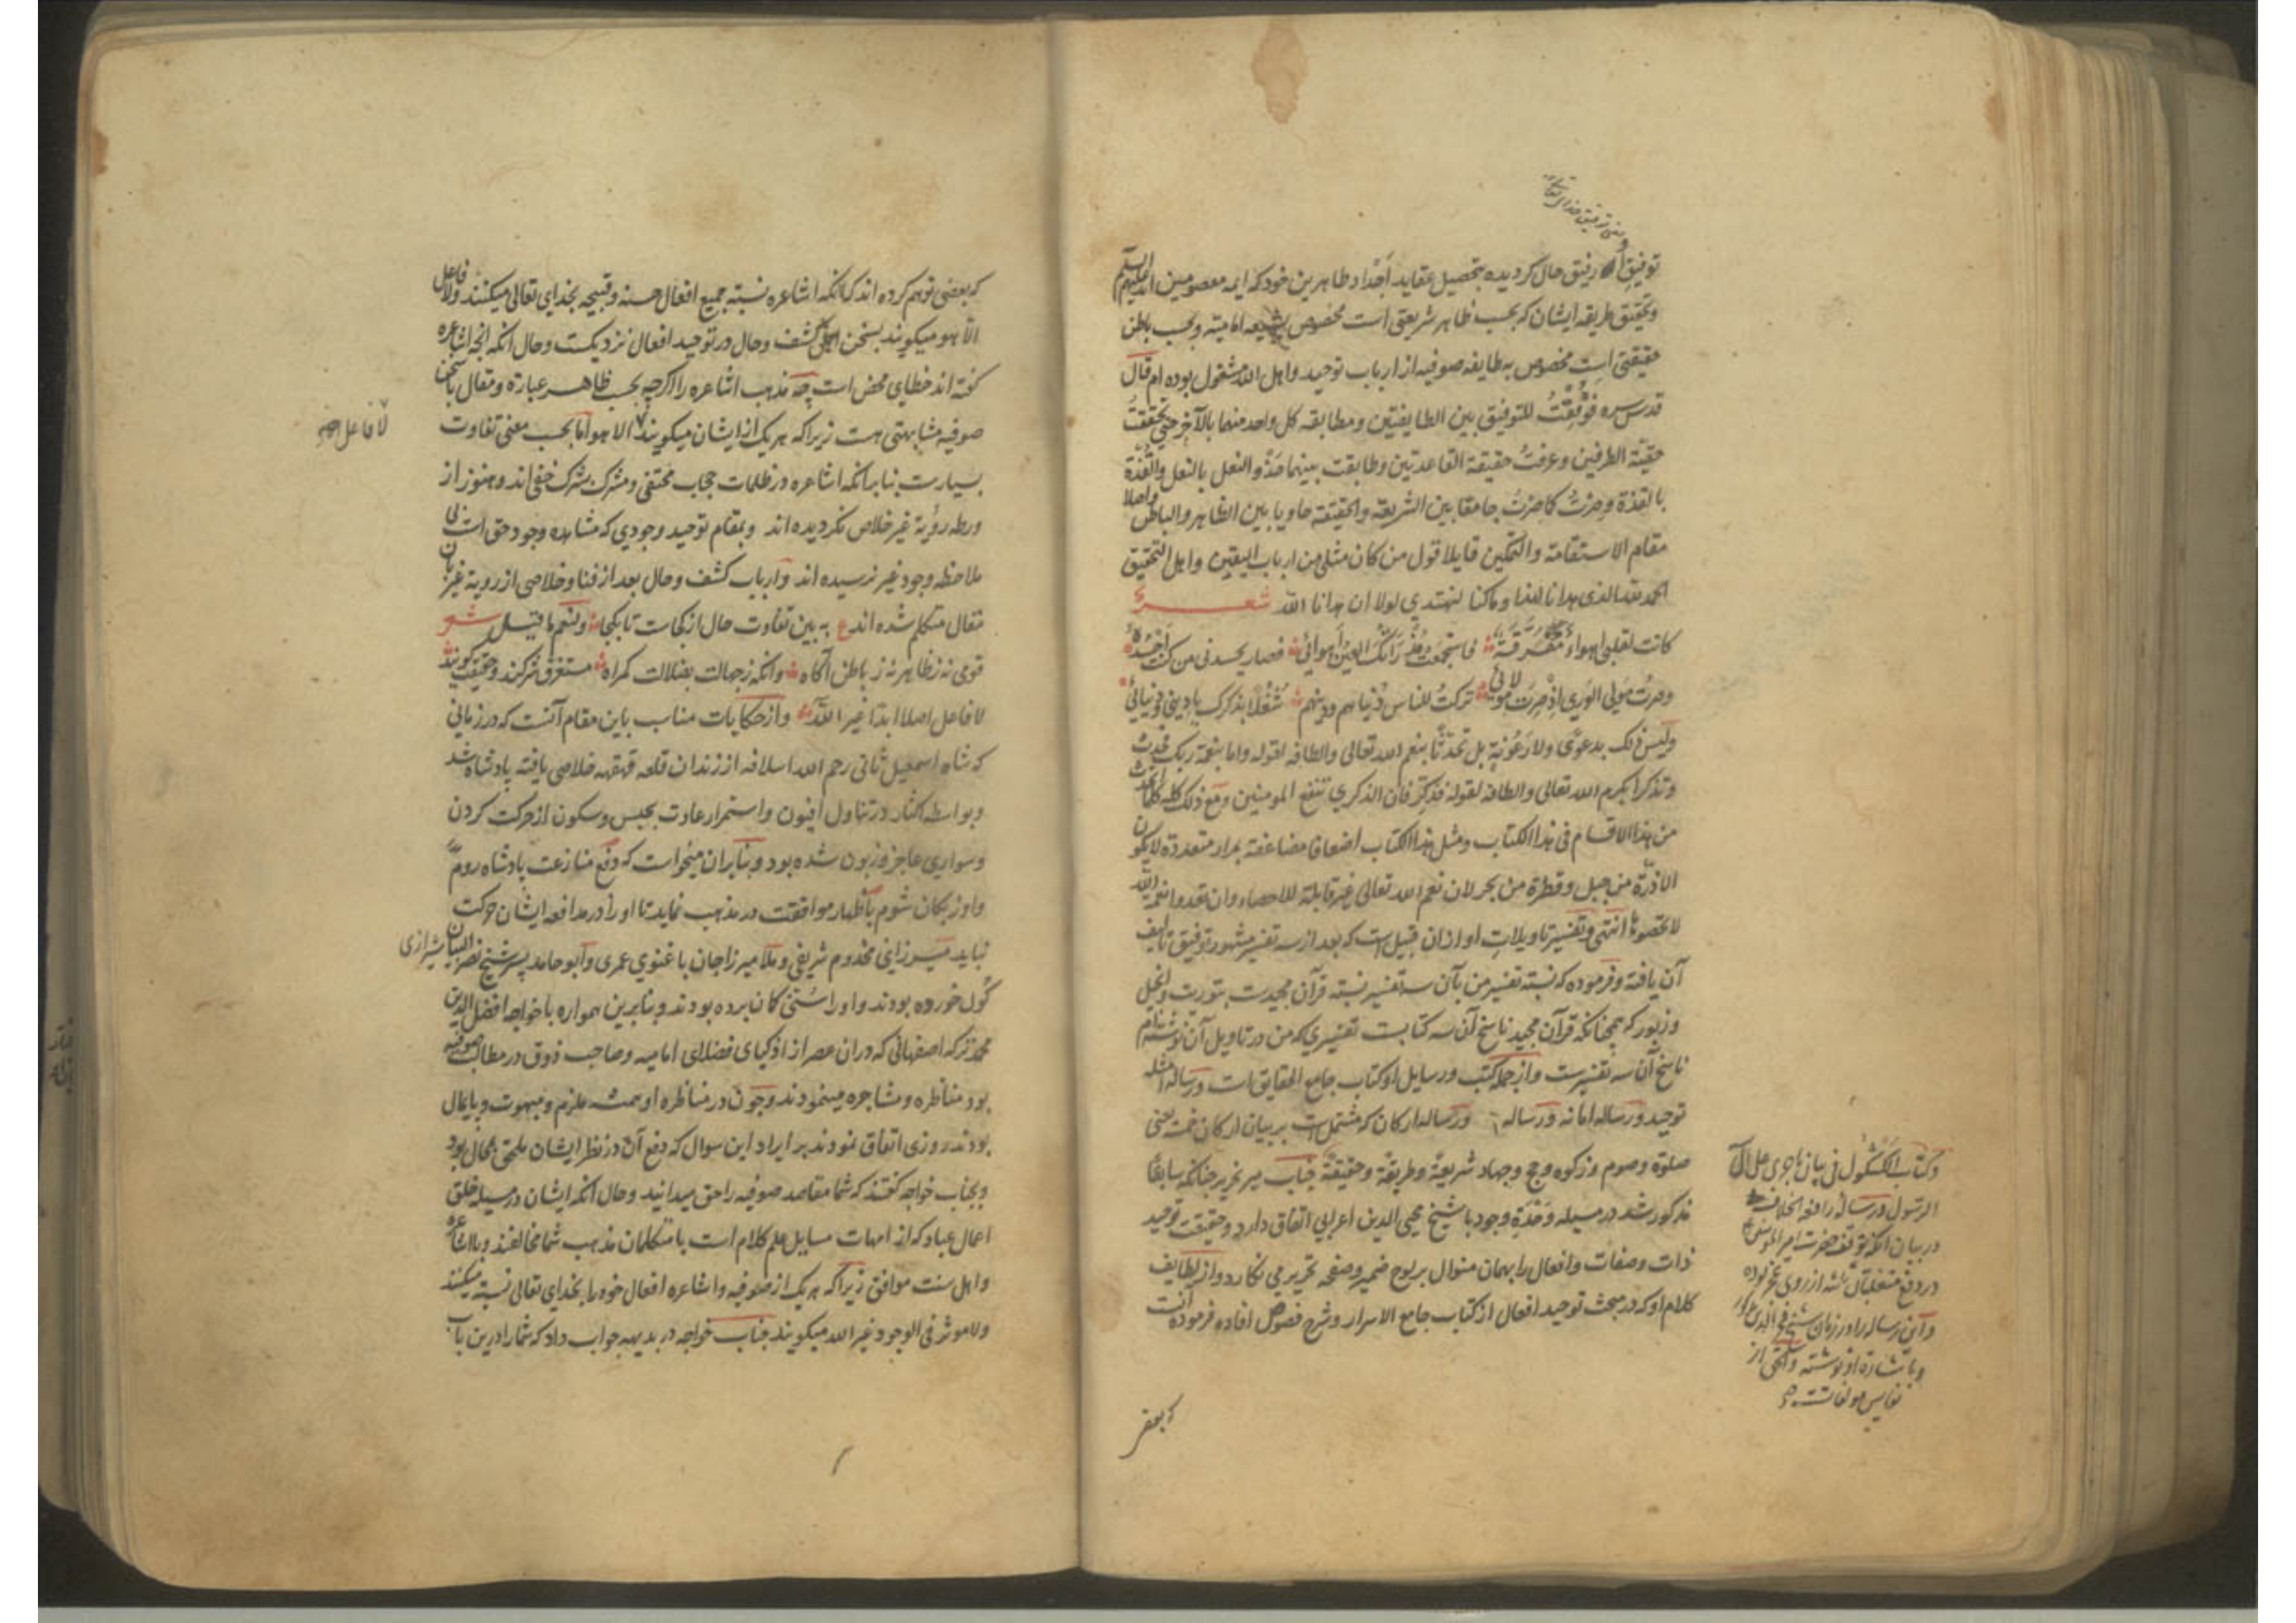 توفیق رفیق حال کردیده بتحصیل عقاید اجداد طاهرین خود که ایمه معصومین اند علیهم السلام
و تحقیق طریقه ایشان که بحسب ظاهر شریعتی است مخصوص بشیعه امامیه و بحسب باطن
حقیقتی است مخصوص به طایفه صوفیه از ارباب توحید و اهل الله مشغول بوده ام قال
قدس سره فوفقت للتوفیق بین الطایفتین و مطابقه کل واحد منهما بالآخر حتی تحققت
حقیة الطرفین و عرفت حقیقة القاعدتین و طابقت بینهما حذو النعل بالنعل والقذة
بالقذة و صرت کما صرت جامعا بین الشریعة والحقیقة حاویا بین الظاهر والباطن واصلا
مقام الاستقامة والتمکین قایلا قول من کان مثلی من ارباب الیقین و اهل التحقیق
الحمد لله الذی هدانا لهذا و ما کنا لنهتدي لولا ان هدانا الله شعر
کانت لقلبی اهواء مفرقة فاستجمعت مذ راتک العین اهوائی فصار یحسدنی من کنت احسده
وصرت مولی الوری اذ صرت مولائی ترکت للناس دنیاهم ودینهم شغلا بذکرک یا دینی و دنیائی
ولیس ذلک بدعوی ولا رعونة بل تحدثا بنعم الله تعالی والطافه لقوله واما بنعمة ربک فحدث
وتذکرا بکرم الله تعالی والطافه لقوله فذکر فان الذکری تنفع المومنین ومع ذلک کله کلما
من هذا الاقسام فی هذا الکتاب ومثل هذا الکتاب اضعافا مضاعفة بمرار متعددة لا یکون
الا ذرة من جبل وقطرة من بحر لان نعم الله تعالی غیر قابلة للاحصاء وان تعدوا نعمة الله
لا تحصوها انتهی و تفسیر تاویلات او ازان قبیل است که بعد از سه تفسیر مشهور توفیق تالیف
آن یافته و فرموده که نسبة تفسیر من بآن سه تفسیر نسبة قرآن مجیدست بتوریت و انجیل
و زبور که همچنانکه قرآن مجید ناسخ آن سه کتابست تفسیری که من در تاویل آن نوشته ام
ناسخ آن سه تفسیرست و از جمله کتب و رسایل او کتاب جامع الحقایق است و رساله امثله
توحید و رساله امانه و رساله و رساله ارکان که مشتمل است بر بیان ارکان خمسه یعنی
صلوة وصوم و زکوه و حج و جهاد شریعة و طریقة و حقیقة جناب میر نیز چنانکه سابقا
مذکور شد در مسئله وحدة وجود با شیخ محیی الدین اعرابی اتفاق دارد و حقیقت توحید
ذات و صفات و افعال را بهمان منوال بر لوح ضمیر و صفحه تحریر می نکارد و از لطایف
کلام او که در مبحث توحید افعال از کتاب جامع الاسرار و شرح فصوص افاده فرموده آنست
و کتاب الکشکول فی بیان ما جری علی آل
الرسول و رساله رافعه الخلاف
در بیان انکه توقف حضرت امیر المومنین
و این رساله را در زمان شیخ فخر الدین
و باشارة او نوشته و الحق از
نفایس مولفات
که بعضی
که بعضی توهم کرده اند که انکه اشاعره نسبة جمیع افعال حسنه و قبیحه بخدای تعالی میکنند ولا فاعل
الا هو میکویند بسخن اهل کشف و حال در توحید افعال نزدیکست و حال انکه انچه اشاعره
کفته اند خطای محض است چه مذهب اشاعره را اکرچه بحسب ظاهر عبارة و مقال با سخن
صوفیه مشابهتی هست زیرا که هر یک از ایشان میکویند الا هو اما بحسب معنی تفاوت
لا فاعل
بسیارست بنا بر انکه اشاعره در ظلمات حجاب مختفی و مشرک بشرک خفی اند و هنوز از
ورطه رؤیة غیر خلاص نکردیده اند و بمقام توحید وجودي که مشاهده وجود حق است بی
ملاحظه وجود غیر نرسیده اند و ارباب کشف و حال بعد از فنا و خلاصی از رویة غیر بآن
مقال متکلم شده اند ع به بین تفاوت حال از کجاست تا بکجا ولنعم ما قیل شعر
قومی نه ز ظاهر نه ز باطن آکاه وانکه ز جهالت بضلالت کمراه مستغرق شرکند و حقیقت کویند
لا فاعل اصلا ابدا غیر الله و از حکایات مناسب باین مقام آنست که در زمانی
که شاه اسمعیل ثانی رحم الله اسلافه از زندان قلعه قهقهه خلاصی یافته پادشاه شد
و بواسطه اکثار در تناول افیون و استمرار عادت بحبس و سکون از حرکت کردن
و سواری عاجز و زبون شده بود و بنابران میخواست که دفع منازعت پادشاه روم
و اوزبکان شوم باظهار موافقت در مذهب نماید تا او را در مدافعه ایشان حرکت
نباید میرزای مخدوم شریفی و ملا میرزاجان باغنوی عمری و ابو حامد پسر شیخ نصر البیان شیرازی
کول خورده بودند و او را سنی کان برده بودند و بنابرین همواره با خواجه افضل الدین
محمد ترکه اصفهانی که دران عصر از اذکیای فضلای امامیه و صاحب ذوق در مطالب صوفیه
بود مناظره و مشاجره مینمودند و چون در مناظره او همیشه ملزم و مبهوت و پایمال
بودند روزی اتفاق نمودند بر ایراد این سوال که دفع آن در نظر ایشان ملحق بمحال بود
و بجناب خواجه کفتند که شما مقاصد صوفیه را حق میدانید و حال انکه ایشان در مسئله خلق
اعمال عباد که از امهات مسایل علم کلام است با متکلمان مذهب شما مخالفند و با اشاعره
و اهل سنت موافق زیرا که هر یک از صوفیه و اشاعره افعال خود را بخدای تعالی نسبة میکنند
ولا موثر فی الوجود غیر الله میکویند جناب خواجه در بدیهه جواب داد که شما را درین باب